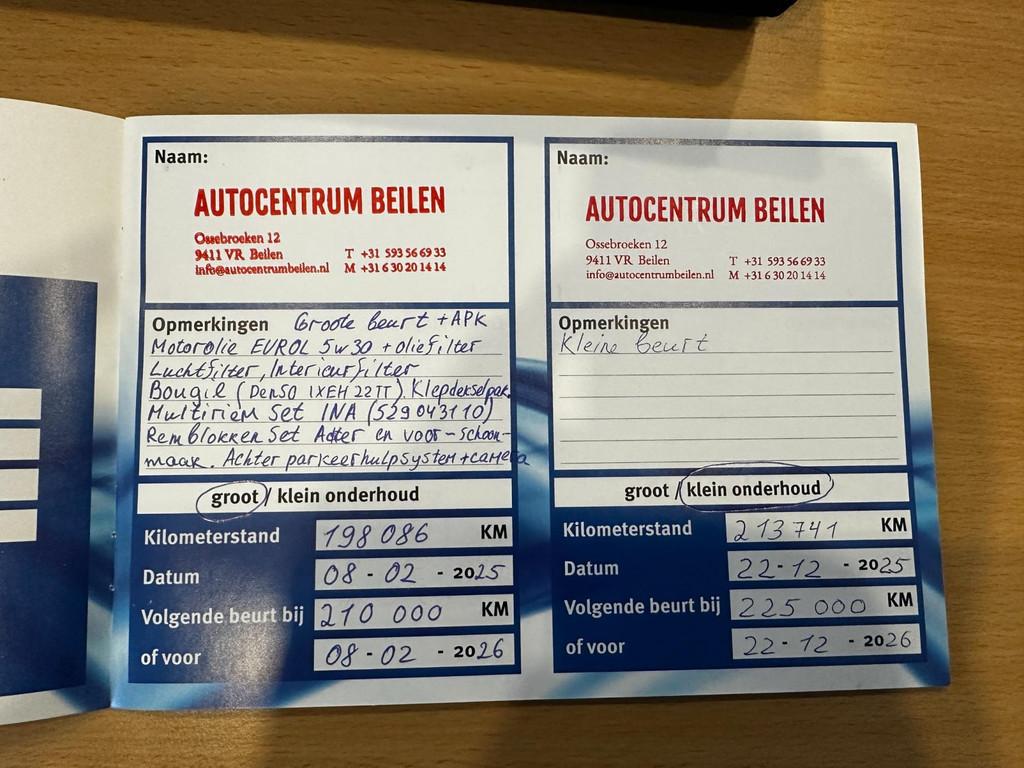 Naam:
AUTOCENTRUM BEILEN
Ossebroeken 12
9411 VR Beilen T +31 593 56 69 33
info@autocentrumbeilen.nl M +31 6 30 20 14 14
Opmerkingen Groote beurt + APK
Motorolie EUROL 5w30 + oliefilter
Luchtfilter, Interieurfilter
Bougie (DENSO IXEH22TT) Klepdekselpak.
Multiriem Set INA (529043110)
Remblokken Set Achter en voor - Schoon-
maak. Achter parkeerhulpsystem + camera
groot / klein onderhoud
Kilometerstand 198 086 KM
Datum 08 - 02 - 2025
Volgende beurt bij 210 000 KM
of voor 08 - 02 - 2026
Naam:
AUTOCENTRUM BEILEN
Ossebroeken 12
9411 VR Beilen T +31 593 56 69 33
info@autocentrumbeilen.nl M +31 6 30 20 14 14
Opmerkingen
Kleine beurt
groot / klein onderhoud
Kilometerstand 213 741 KM
Datum 22 - 12 - 2025
Volgende beurt bij 225 000 KM
of voor 22 - 12 - 2026